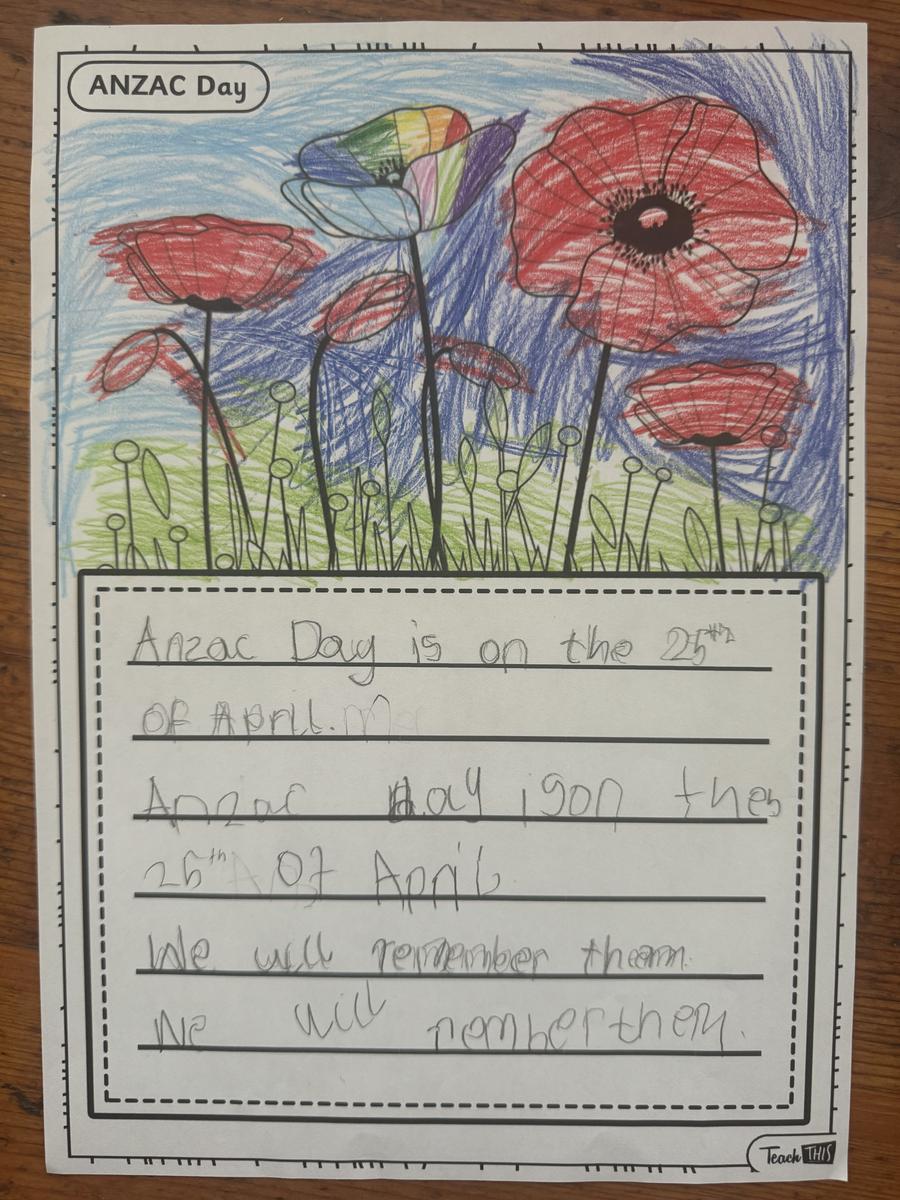 ANZAC Day
Anzac Day is on the 25th
of April.
Anzac Day ison the
25th Of April
We will remember them.
We will remberthem.
Teach THIS